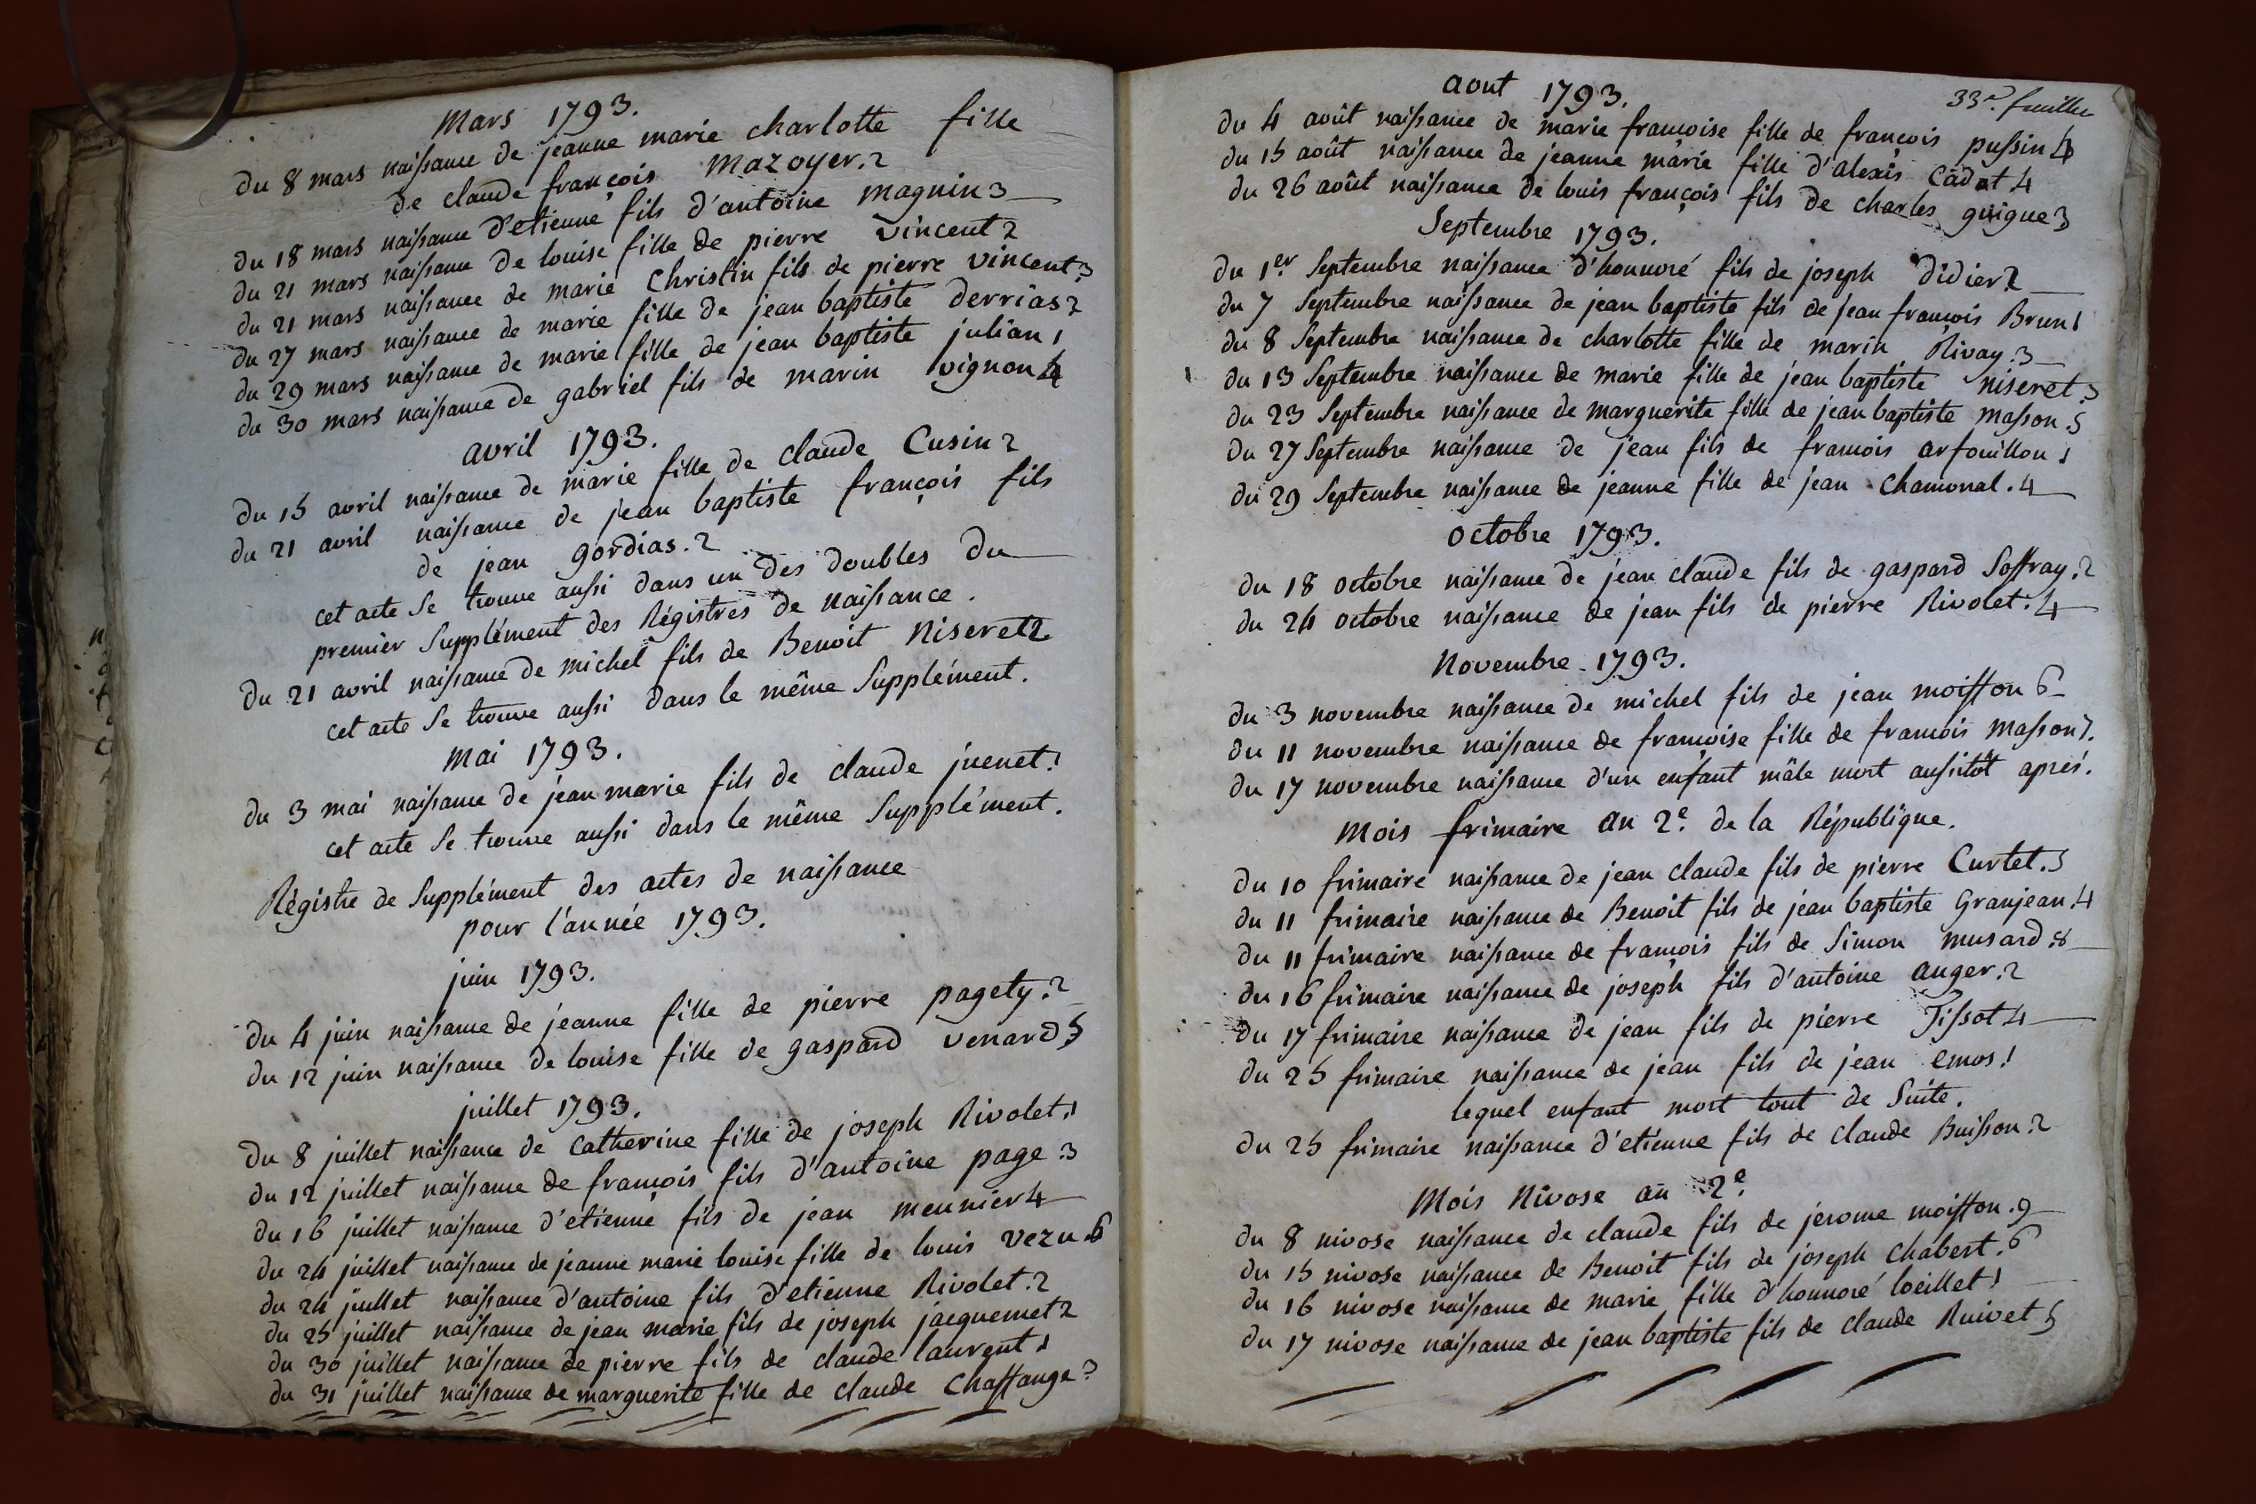 Mars 1793.
du 8 mars naissance de jeanne marie charlotte fille
de claude françois Mazoyer. 2
du 18 mars naissance d'etienne fils d'antoine magnin 3
du 21 mars naissance de louise fille de pierre vincent 2
du 21 mars naissance de marie Christin fils de pierre vincent 3
du 27 mars naissance de marie fille de jean baptiste derrias 2
du 29 mars naissance de marie fille de jean baptiste julian 1
du 30 mars naissance de gabriel fils de marin vignon 4
avril 1793.
du 15 avril naissance de marie fille de claude Cusin 2
du 21 avril naissance de jean baptiste françois fils
de jean gordias. 2
cet acte se trouve aussi dans un des doubles du
premier Supplément des Régistres de naissance.
du 21 avril naissance de michel fils de Benoit Niseret 2
cet acte se trouve aussi dans le même Supplément.
mai 1793.
du 3 mai naissance de jean marie fils de claude juenet. 1
cet acte se trouve aussi dans le même Supplément.
Régistre de Supplément des actes de naissance
pour l'année 1793.
juin 1793.
du 4 juin naissance de jeanne fille de pierre pagety. 2
du 12 juin naissance de louise fille de gaspard venard 5
juillet 1793.
du 8 juillet naissance de catherine fille de joseph Rivolet. 1
du 12 juillet naissance de françois fils d'antoine page. 3
du 16 juillet naissance d'etienne fils de jean meunier 4
du 24 juillet naissance de jeanne marie louise fille de louis vezu. 6
du 24 juillet naissance d'antoine fils d'etienne Rivolet. 2
du 25 juillet naissance de jean marie fils de joseph jacquemet 2
du 30 juillet naissance de pierre fils de claude laurent 1
du 31 juillet naissance de marguerite fille de claude Chaffange
33e. feuillet
aout 1793.
du 4 août naissance de marie françoise fille de françois pussin 4
du 15 août naissance de jeanne marie fille d'alexis Cadot 4
du 26 août naissance de louis françois fils de charles guigue 3
Septembre 1793.
du 1er. Septembre naissance d'honnoré fils de joseph didier 2
du 7 Septembre naissance de jean baptiste fils de jean françois Brun 1
du 8 Septembre naissance de charlotte fille de marin Rivay. 3
du 13 Septembre naissance de marie fille de jean baptiste niseret. 3
du 23 Septembre naissance de marguerite fille de jean baptiste masson. 5
du 27 Septembre naissance de jean fils de françois arfouillon 1
du 29 Septembre naissance de jeanne fille de jean chamonal. 4
octobre 1793.
du 18 octobre naissance de jean claude fils de gaspard Soffray. 2
du 24 octobre naissance de jean fils de pierre Rivolet. 4
Novembre 1793.
du 3 novembre naissance de michel fils de jean moiffon 6
du 11 novembre naissance de françoise fille de françois masson 7.
du 17 novembre naissance d'un enfant mâle mort aussitôt aprés.
Mois frimaire an 2e. de la République.
du 10 frimaire naissance de jean claude fils de pierre Curtet. 5
du 11 frimaire naissance de Benoit fils de jean baptiste Granjean. 4
du 11 frimaire naissance de françois fils de Simon musard. 8
du 16 frimaire naissance de joseph fils d'antoine auger. 2
du 17 frimaire naissance de jean fils de pierre Tissot 4
du 25 frimaire naissance de jean fils de jean emos. 1
lequel enfant mort tout de Suite.
du 25 frimaire naissance d'etienne fils de claude Buisson. 2
Mois Nivose an 2e.
du 8 nivose naissance de claude fils de jerome moiffon. 9
du 15 nivose naissance de Benoit fils de joseph chabert. 6
du 16 nivose naissance de marie fille d'honnoré loeillet 1
du 17 nivose naissance de jean baptiste fils de claude Ruivet 5